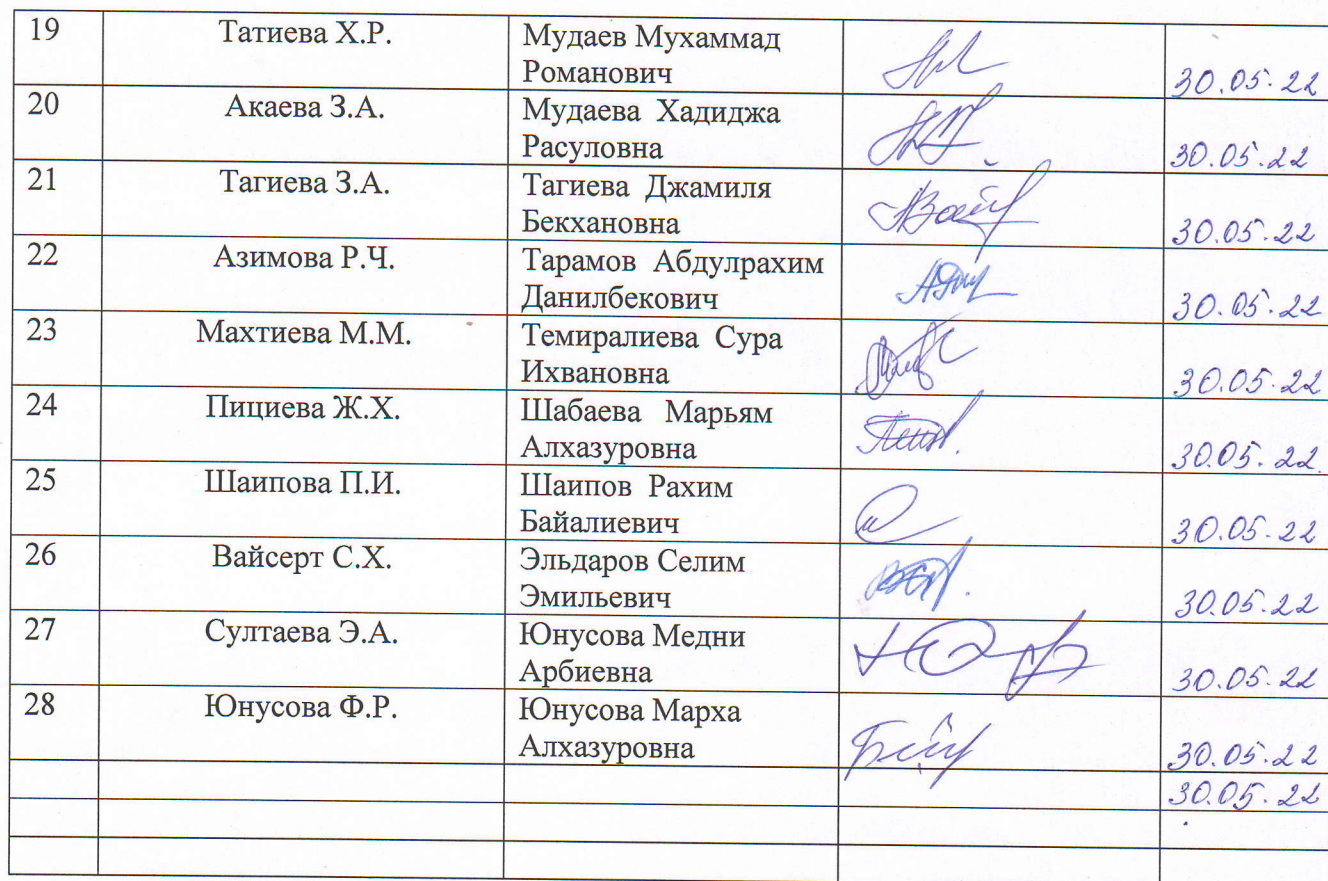 19 Татиева Х.Р. Мудаев Мухаммад
Романович 30.05.22
20 Акаева З.А. Мудаева Хадиджа
Расуловна 30.05.22
21 Тагиева З.А. Тагиева Джамиля
Бекхановна 30.05.22
22 Азимова Р.Ч. Тарамов Абдулрахим
Данилбекович 30.05.22
23 Махтиева М.М. Темиралиева Сура
Ихвановна 30.05.22
24 Пициева Ж.Х. Шабаева Марьям
Алхазуровна 30.05.22.
25 Шаипова П.И. Шаипов Рахим
Байалиевич 30.05.22
26 Вайсерт С.Х. Эльдаров Селим
Эмильевич 30.05.22
27 Султаева Э.А. Юнусова Медни
Арбиевна 30.05.22
28 Юнусова Ф.Р. Юнусова Марха
Алхазуровна 30.05.22
30.05.22